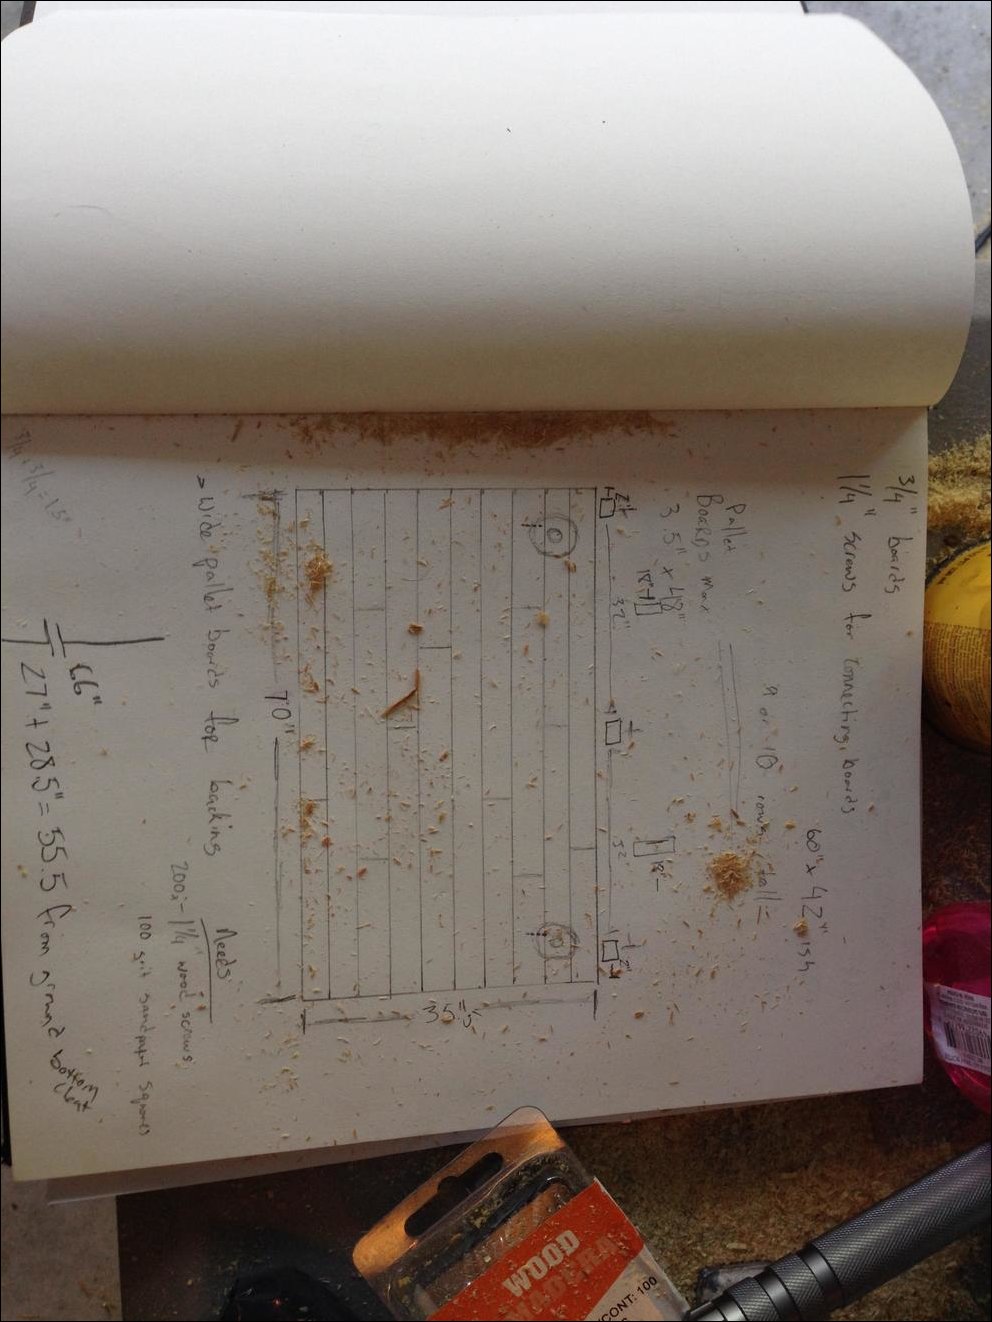 3/4" boards
1 1/4" screws for connecting boards
60" x 42" ish
9 or 10 rows tall =
Pallet
Boards max
3 5" x 48"
18"
18"
2"
32"
32"
2"
70"
35.5"
> Wide pallet boards for backing
Needs
200 - 1 1/4" wood screws
100 grit sandpaper squares
66"
27" + 28.5" = 55.5 from ground bottom
cleat
3/4 + 3/4 = 1.5"
WOOD
CONT: 100